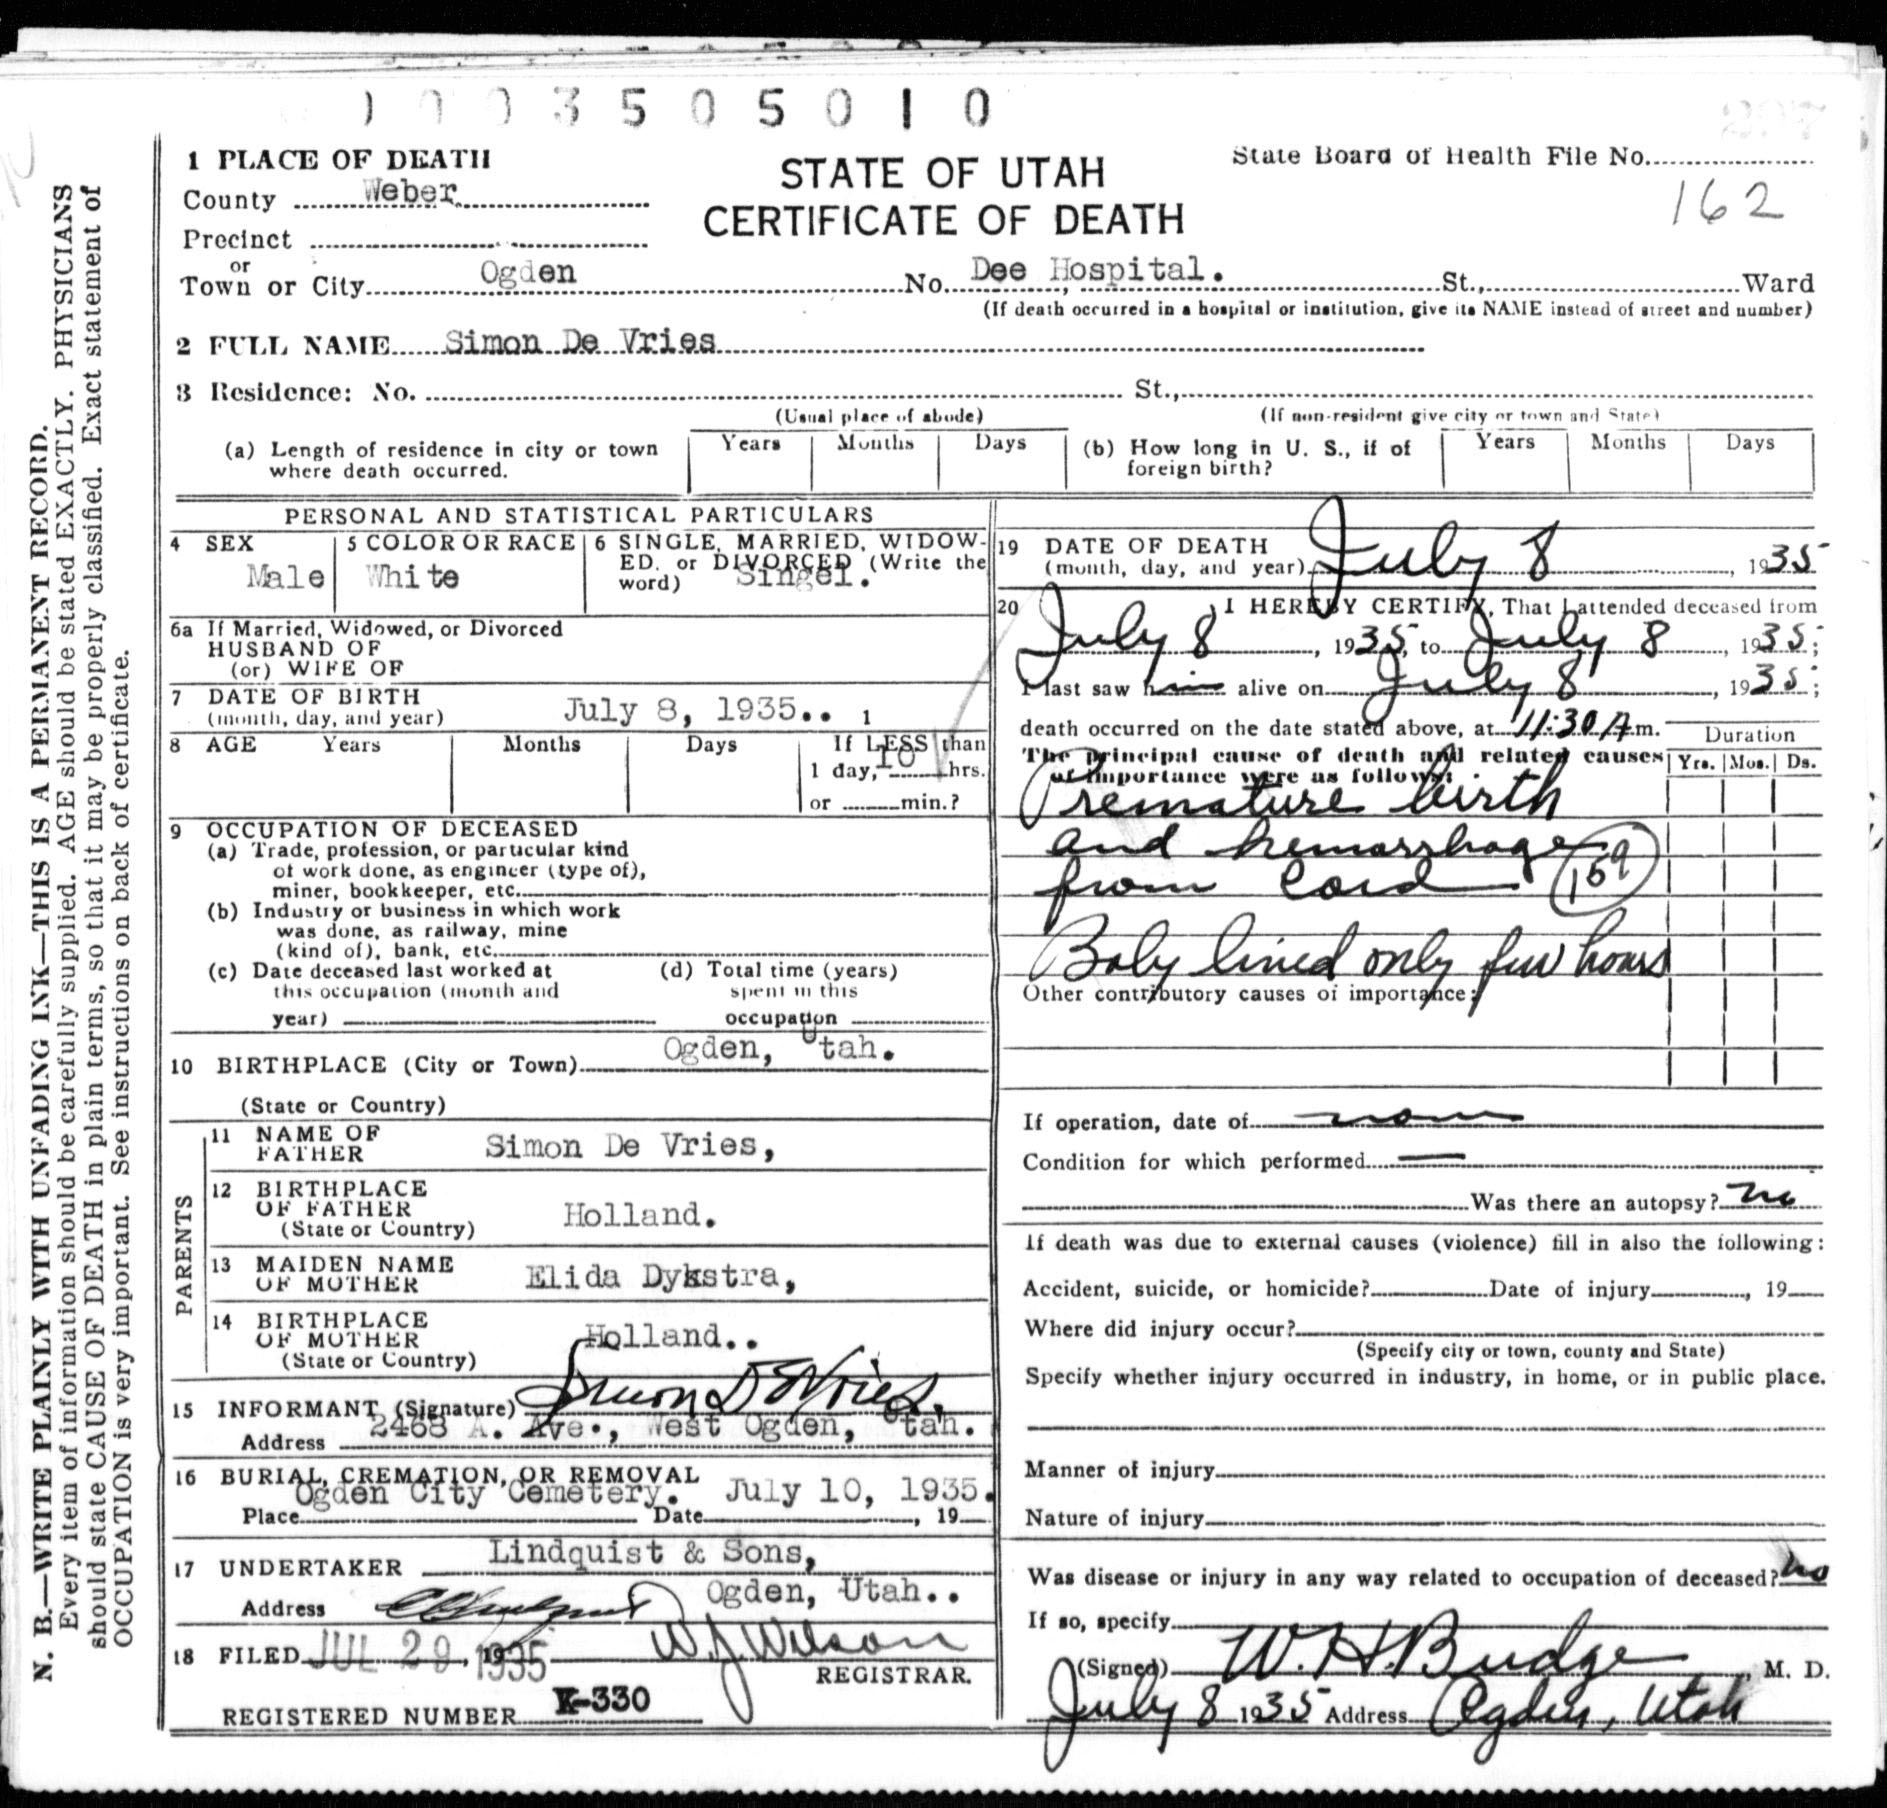 1003505010
1 PLACE OF DEATH
STATE OF UTAH
CERTIFICATE OF DEATH
State Board of Health File No.
162
County Weber
Precinct
or
Town or City Ogden No. Dee Hospital. St., Ward
(If death occurred in a hospital or institution, give its NAME instead of street and number)
2 FULL NAME Simon De Vries
3 Residence: No. St.,
(Usual place of abode) (If non-resident give city or town and State)
(a) Length of residence in city or town where death occurred. Years Months Days (b) How long in U. S., if of foreign birth? Years Months Days
PERSONAL AND STATISTICAL PARTICULARS
4 SEX Male
5 COLOR OR RACE White
6 SINGLE, MARRIED, WIDOW-
ED. or DIVORCED (Write the
word) Singel.
6a If Married, Widowed, or Divorced
HUSBAND OF
(or) WIFE OF
7 DATE OF BIRTH
(month, day, and year) July 8, 1935.. 1
8 AGE Years Months Days If LESS than
1 day, 10 hrs.
or min.?
9 OCCUPATION OF DECEASED
(a) Trade, profession, or particular kind
of work done, as engineer (type of),
miner, bookkeeper, etc.
(b) Industry or business in which work
was done, as railway, mine
(kind of), bank, etc.
(c) Date deceased last worked at
this occupation (month and
year)
(d) Total time (years)
spent in this
occupation
10 BIRTHPLACE (City or Town) Ogden, Utah.
(State or Country)
PARENTS
11 NAME OF
FATHER Simon De Vries,
12 BIRTHPLACE
OF FATHER
(State or Country) Holland.
13 MAIDEN NAME
OF MOTHER Elida Dykstra,
14 BIRTHPLACE
OF MOTHER
(State or Country) Holland..
15 INFORMANT (Signature) Simon De Vries.
Address 2468 A. Ave., West Ogden, Utah.
16 BURIAL, CREMATION, OR REMOVAL
Place Ogden City Cemetery. Date July 10, 1935. , 19
17 UNDERTAKER Lindquist & Sons,
Address Ogden, Utah..
18 FILED JUL 29 1935, 19 W. J. Wilson
REGISTRAR.
REGISTERED NUMBER K-330
19 DATE OF DEATH
(month, day, and year) July 8, 1935
20 I HEREBY CERTIFY, That I attended deceased from
July 8, 1935, to July 8, 1935;
I last saw him alive on July 8, 1935;
death occurred on the date stated above, at 11:30 A m.
The principal cause of death and related causes
of importance were as follows:
Duration
Yrs. Mos. Ds.
Premature birth
and hemorrhage
from Cord 159
Baby lived only few hours
Other contributory causes of importance:
If operation, date of none
Condition for which performed —
Was there an autopsy? no
If death was due to external causes (violence) fill in also the following:
Accident, suicide, or homicide? Date of injury , 19
Where did injury occur?
(Specify city or town, county and State)
Specify whether injury occurred in industry, in home, or in public place.
Manner of injury
Nature of injury
Was disease or injury in any way related to occupation of deceased? no
If so, specify
(Signed) W. H. Budge, M. D.
July 8 1935 Address Ogden, Utah
N. B.—WRITE PLAINLY WITH UNFADING INK—THIS IS A PERMANENT RECORD.
Every item of information should be carefully supplied. AGE should be stated EXACTLY. PHYSICIANS
should state CAUSE OF DEATH in plain terms, so that it may be properly classified. Exact statement of
OCCUPATION is very important. See instructions on back of certificate.